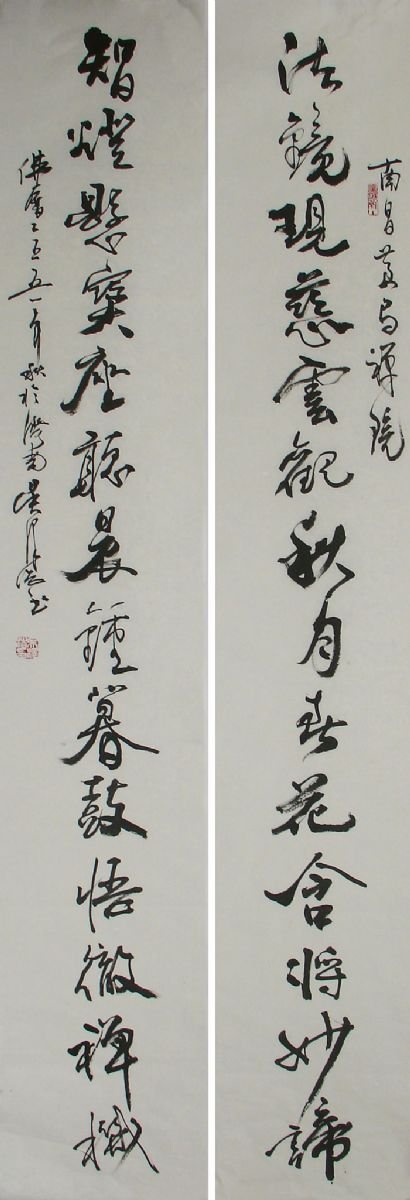 南昌黃馬禪院
法鏡現慈雲觀秋月春花含將妙諦
智燈懸寶座聽晨鍾暮鼓悟徹禪機
佛曆二五五一年秋於濟南吳澤浩書